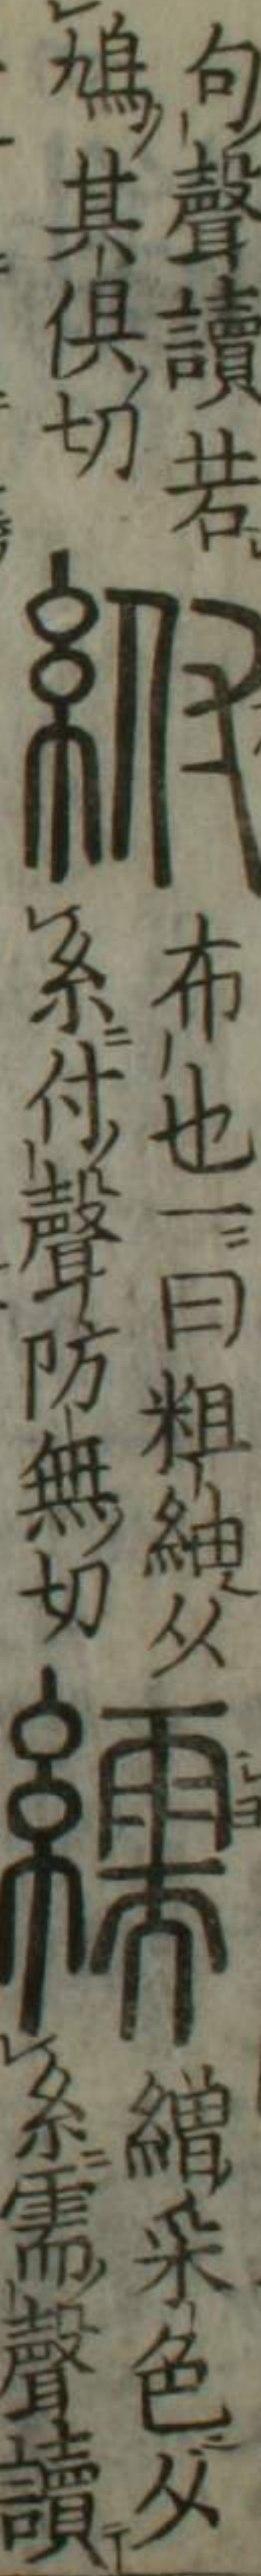 句聲讀若
鳩其俱切
紨
布也一曰粗紬从
糸付聲防無切
繻
繒采色从
糸需聲讀